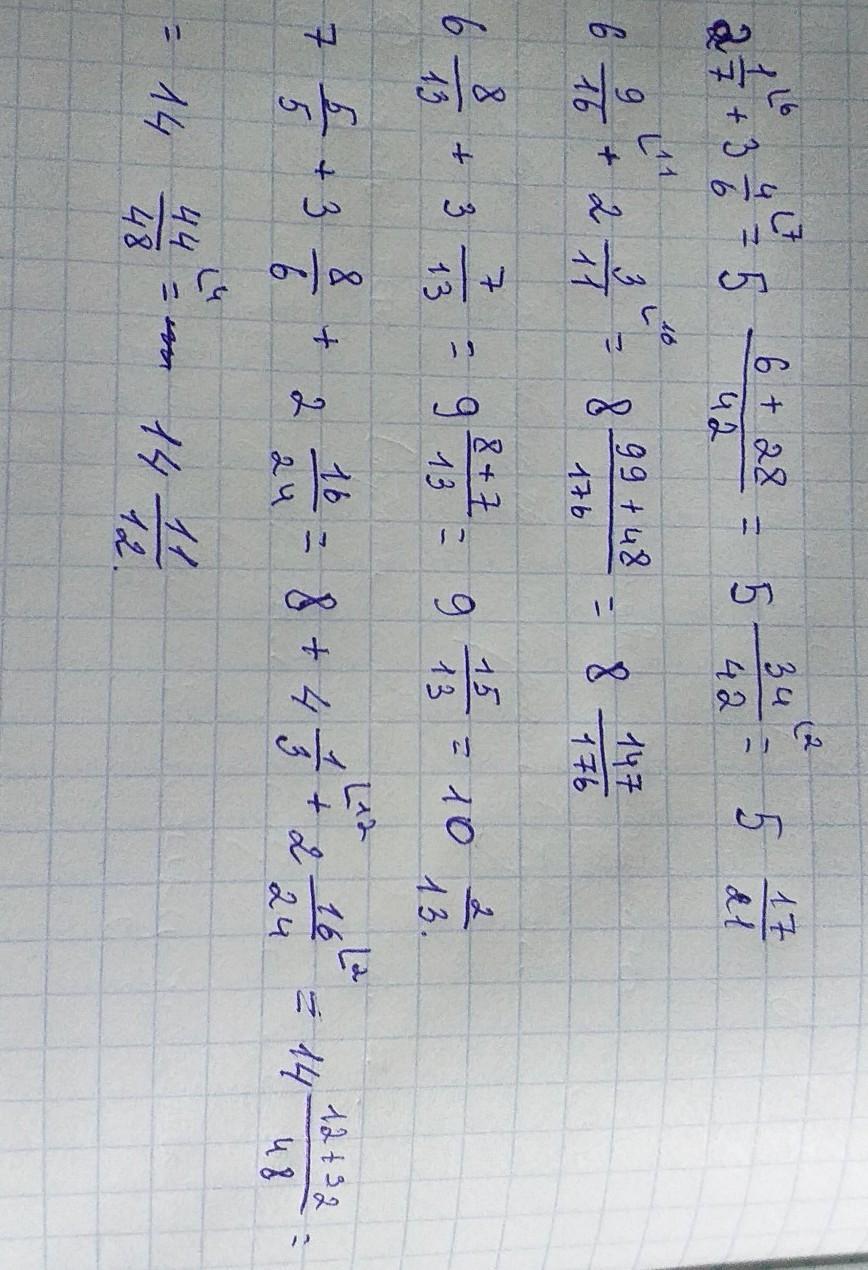 2 1/7 ⌊6 + 3 4/6 ⌊7 = 5 (6 + 28)/42 = 5 34/42 ⌊2 = 5 17/21
6 9/16 ⌊11 + 2 3/11 ⌊16 = 8 (99 + 48)/176 = 8 147/176
6 8/13 + 3 7/13 = 9 (8 + 7)/13 = 9 15/13 = 10 2/13.
7 5/5 + 3 8/6 + 2 16/24 = 8 + 4 1/3 ⌊12 + 2 16/24 ⌊2 = 14 (12 + 32)/48 =
= 14 44/48 ⌊4 = 14 11/12.